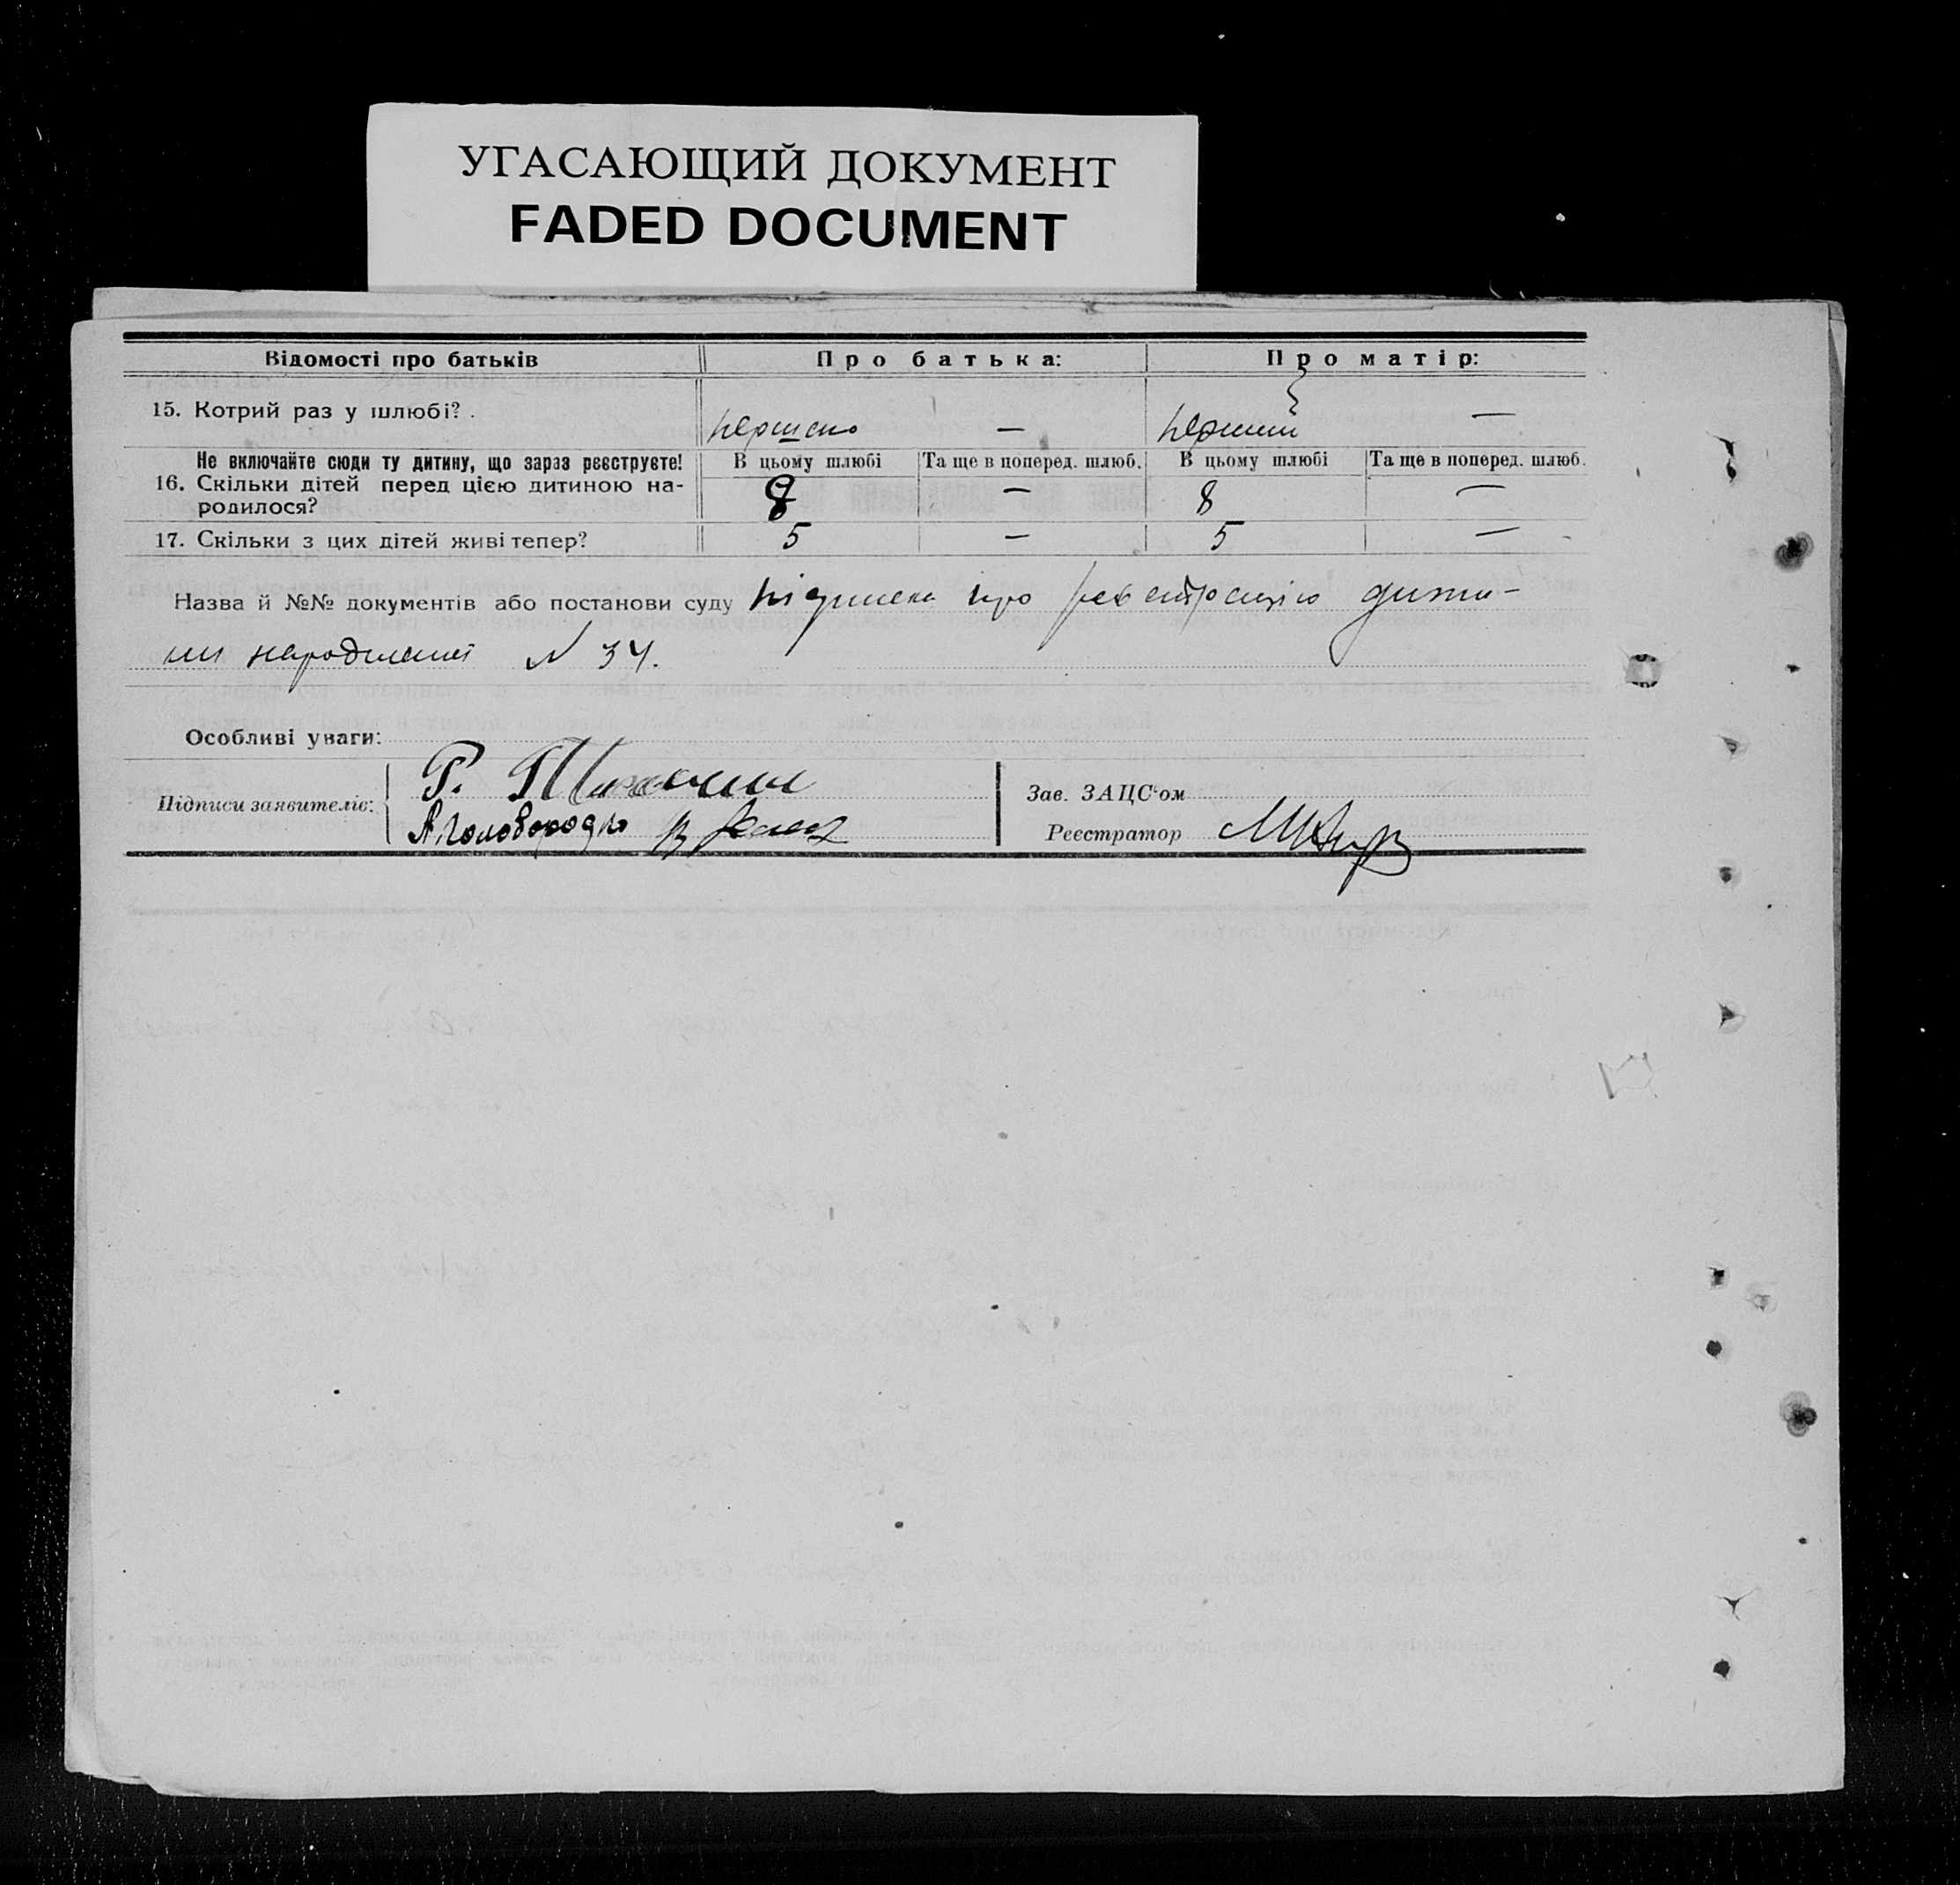 УГАСАЮЩИЙ ДОКУМЕНТ
FADED DOCUMENT
Відомості про батьків Про батька: Про матір:
15. Котрий раз у шлюбі? . — перший —
Не включайте сюди ту дитину, що зараз реєструєте! В цьому шлюбі Та ще в поперед. шлюб. В цьому шлюбі Та ще в поперед. шлюб.
16. Скільки дітей перед цією дитиною на-
родилося? 8 — 8 —
17. Скільки з цих дітей живі тепер? 5 — 5 —
Назва й №№ документів або постанови суду підписка про реєстрацію дити-
ни N 34.
Особливі уваги:
Підписи заявителів: Р.
А. Головородко
Зав. ЗАЦС'ом
Реєстратор